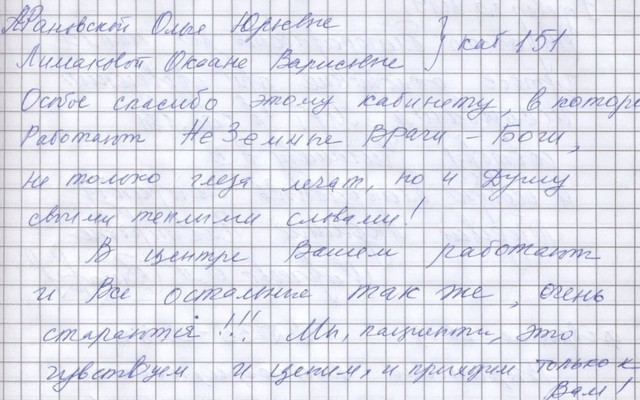 Рановской Ольге Юрьевне } каб 151
Лимаковой Оксане Варисовне
Особое спасибо этому кабинету, в которо
Работают НеЗемные Врачи – Боги,
не только глаза лечат, но и Душу
своими теплыми словами!
В центре Вашем работают
и Все остальные так же, очень
стараются!!! Мы, пациенты, это
чувствуем и ценим, и приходим только к
Вам!